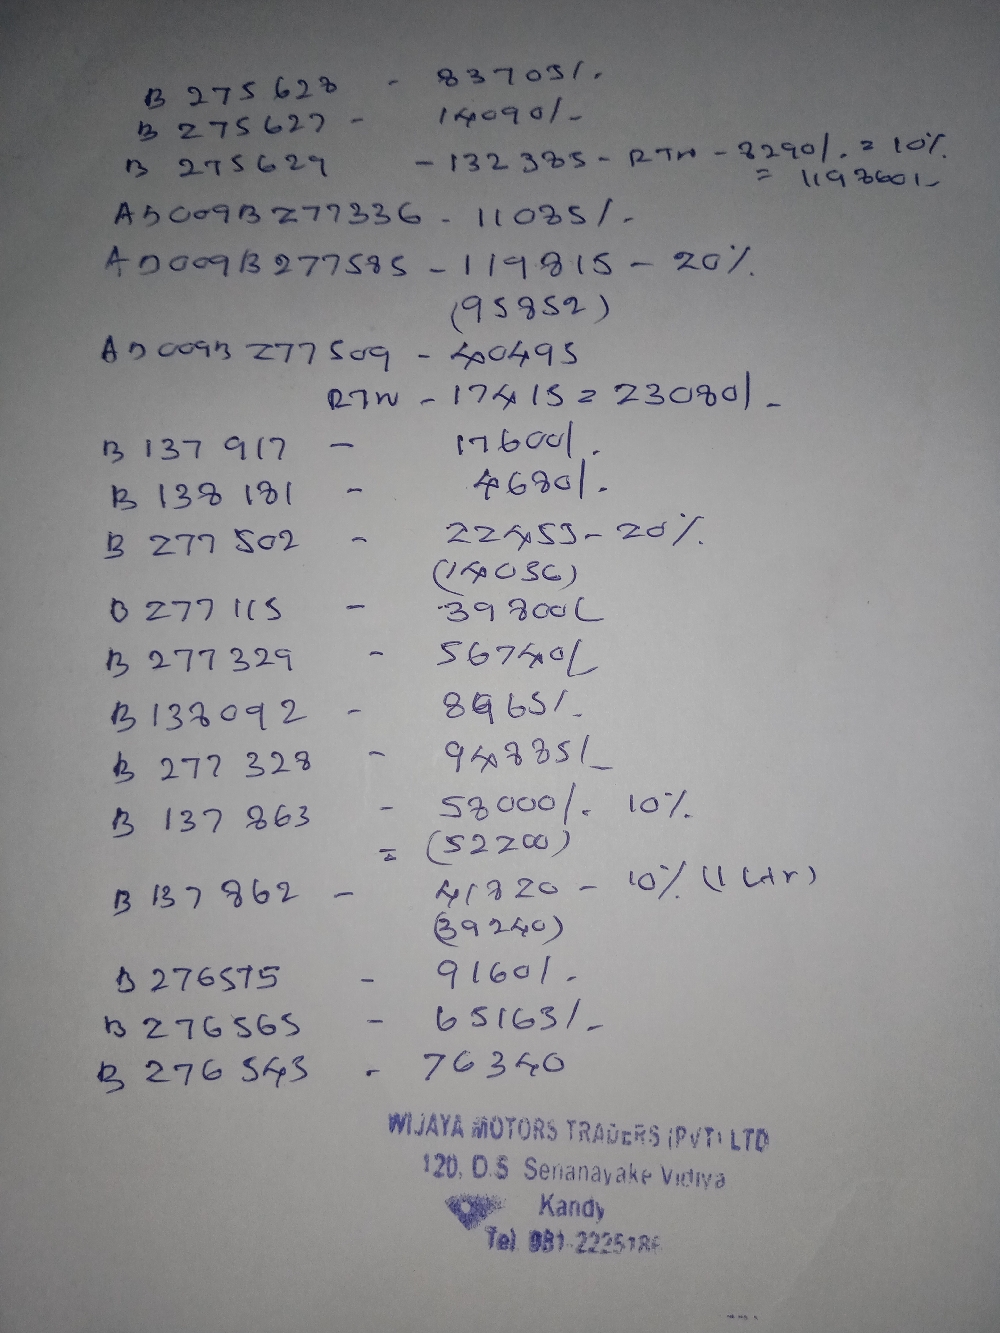 B 275628 - 83705/-
B 275627 - 14090/-
B 275629 - 132385 - RTN - 8290/- = 10%
= 119860/-
AD009B277336 - 11085/-
AD009B277585 - 119815 - 20%
(95852)
AD009B 277509 - 40495
RTN - 17415 = 23080/-
B 137917 - 17600/-
B 138181 - 4680/-
B 277502 - 22453 - 20%
(14056)
B 277115 - 39800/-
B 277329 - 56740/-
B 138092 - 8965/-
B 277328 - 94885/-
B 137863 - 58000/- 10%
= (52200)
B 137862 - 41820 - 10% (1 Ltr)
(39240)
B 276575 - 9160/-
B 276565 - 65163/-
B 276543 - 76340
WIJAYA MOTORS TRADERS (PVT) LTD
120, D.S Senanayake Vidiya
Kandy
Tel 081-2225186